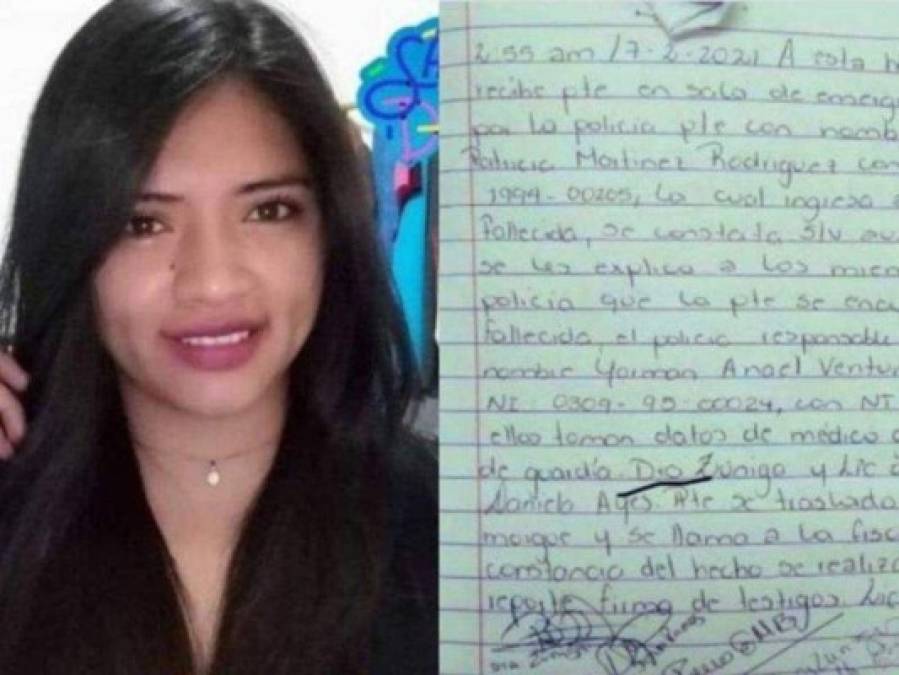 2:55 am 17-2-2021 A esta h
recibe pte en sala de emerg
por la policia pte con nomb
Patricia Martinez Rodriguez con
1994-00205, la cual ingresa
fallecida, se constata S/V au
se les explica a los miem
policia que la pte se encu
fallecida, el policia responsable
nombre Yorman Angel Ventur
NI 0309-95-00024, con NI
ellos toman datos de médico
de guardia Dra Zuniga y Lic
Daniela Pte se traslada
morgue y se llama a la fisc
constancia del hecho se realiza
reporte firma de testigos. Lic